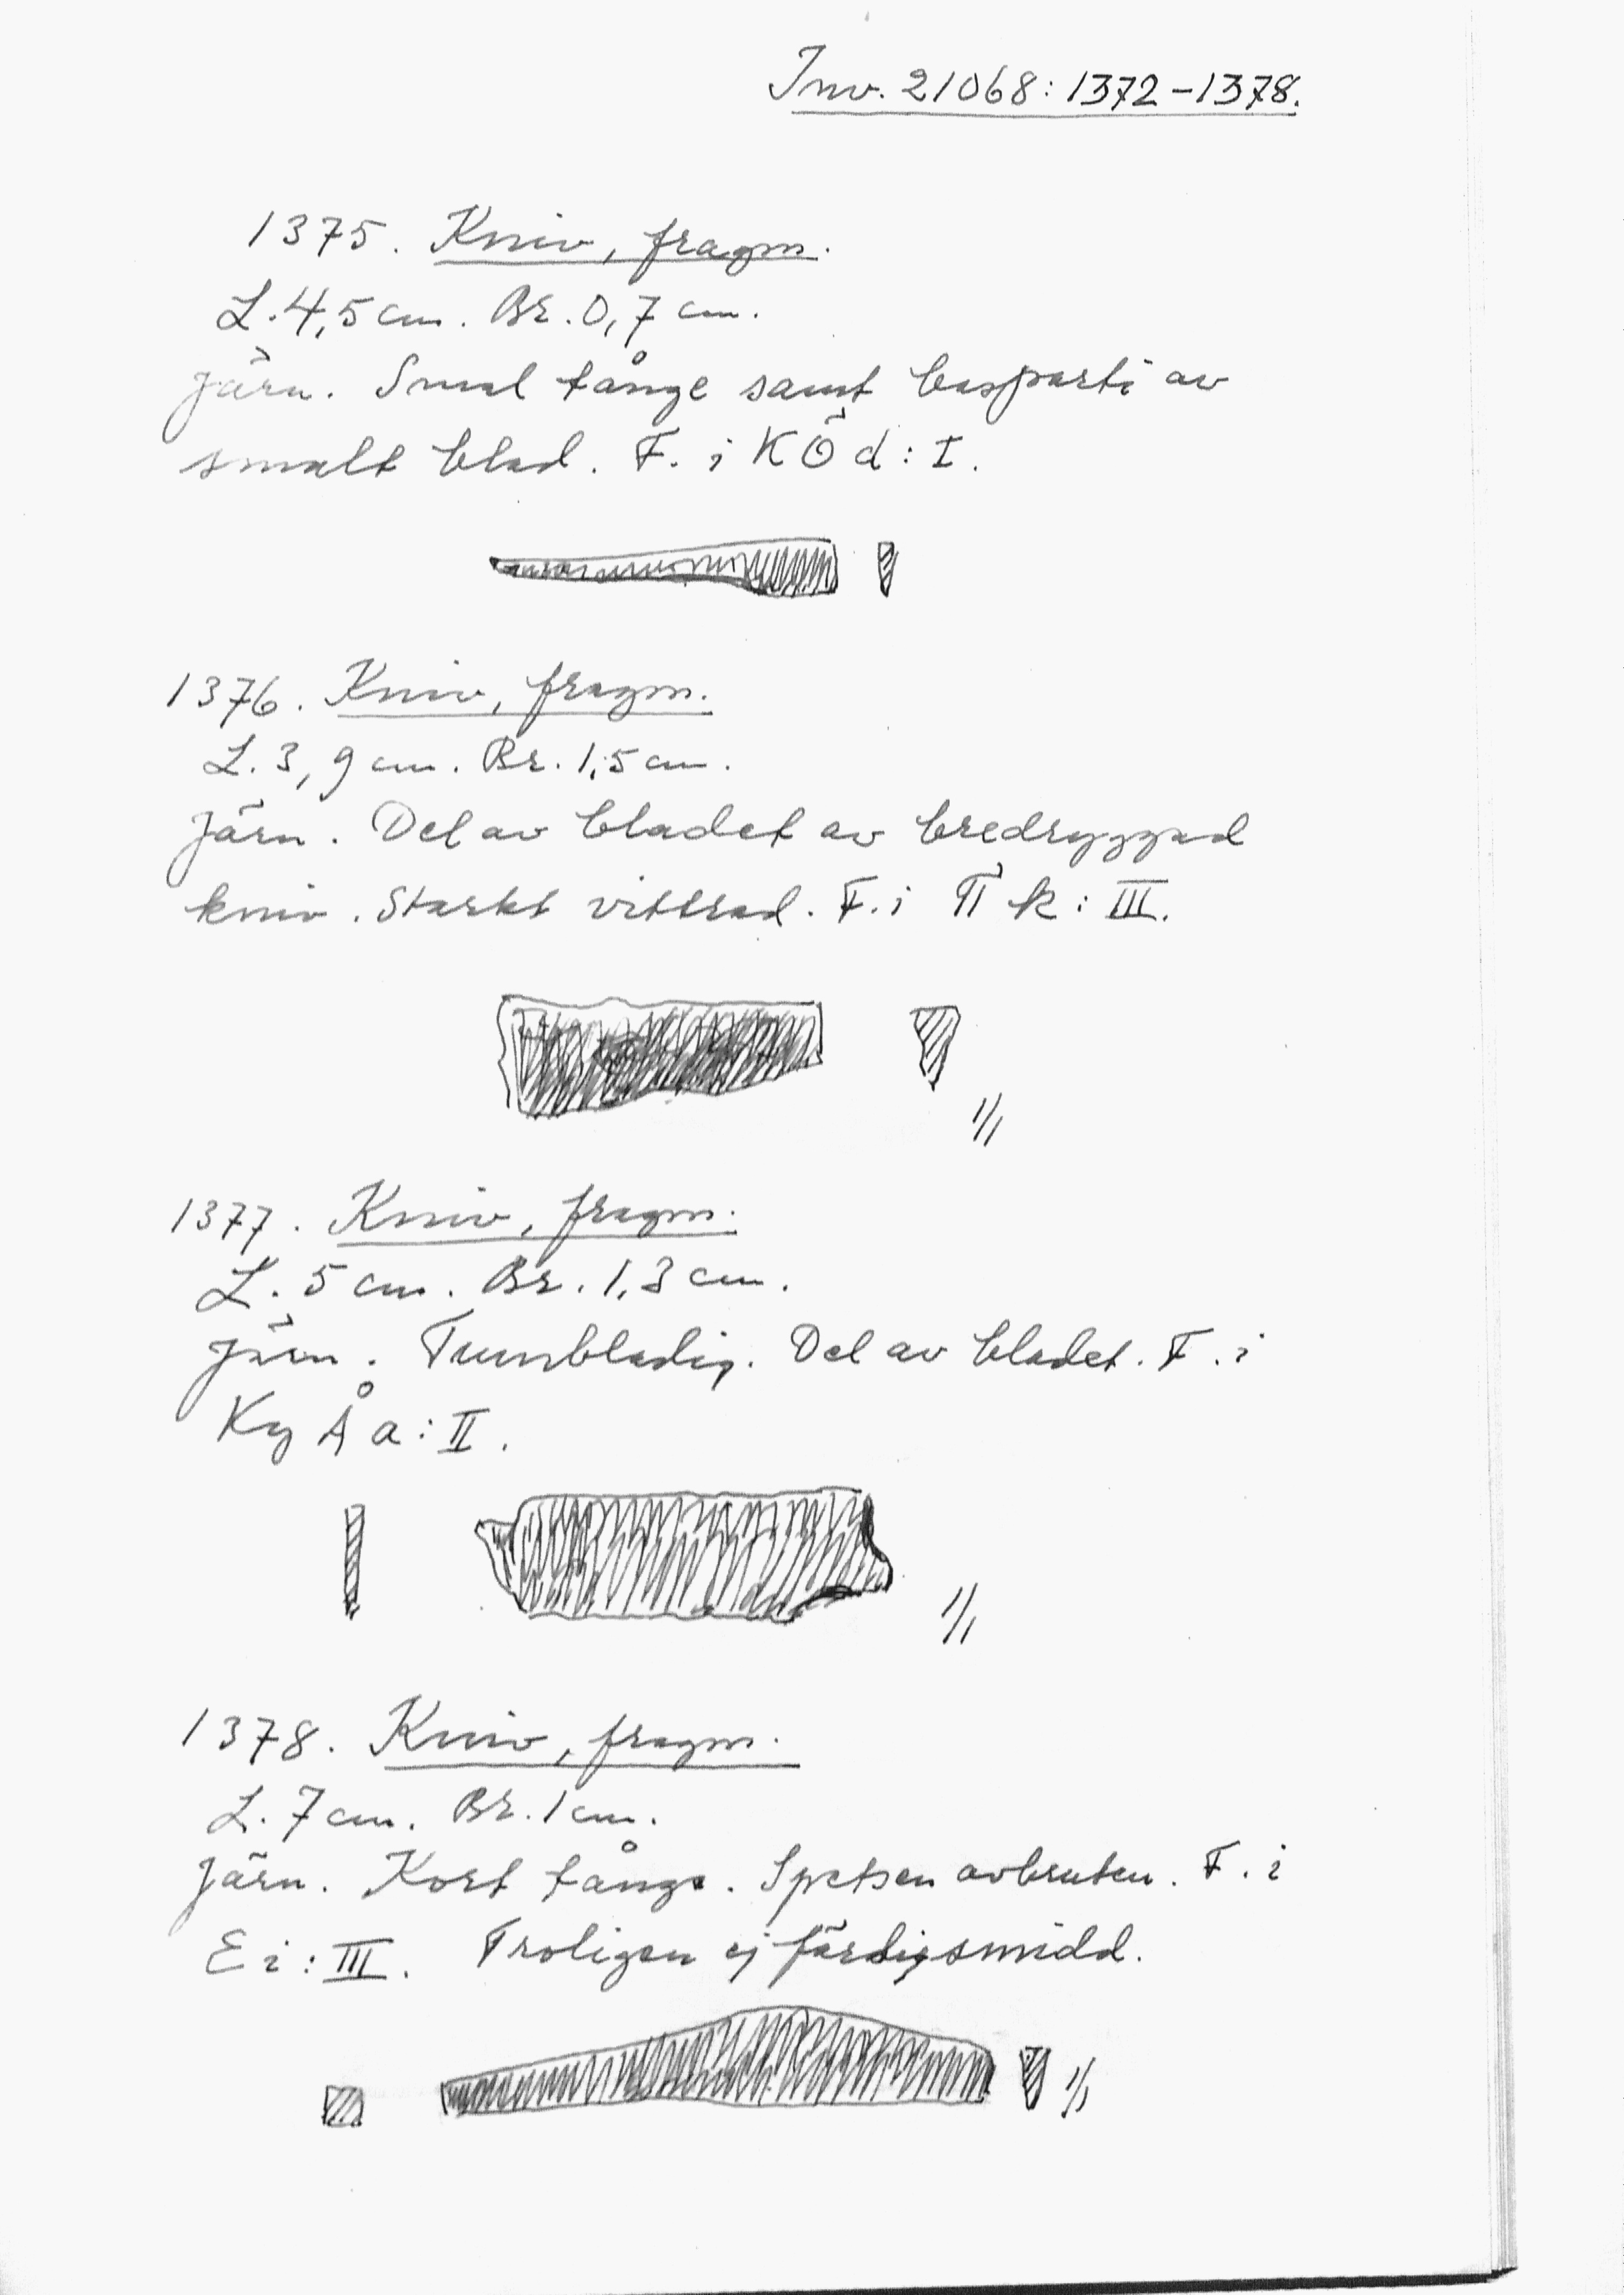 Inv. 21068: 1372-1378.
1375. Kniv, fragm.
L. 4,5 cm. Br. 0,7 cm.
Järn. Smal tånge samt basparti av
smalt blad. F. i KÖ d: I.
1376. Kniv, fragm.
L. 3,9 cm. Br. 1,5 cm.
Järn. Del av bladet av bredryggad
kniv. Starkt vittrad. F. i k: III.
1/1
1377. Kniv, fragm.
L. 5 cm. Br. 1,3 cm.
Järn. Tunnbladig. Del av bladet. F. i
Ky Å a: II.
1/1
1378. Kniv, fragm.
L. 7 cm. Br. 1 cm.
Järn. Kort tånge. Spetsen avbruten. F. i
E i: III. Troligen ej färdigsmidd.
1/1